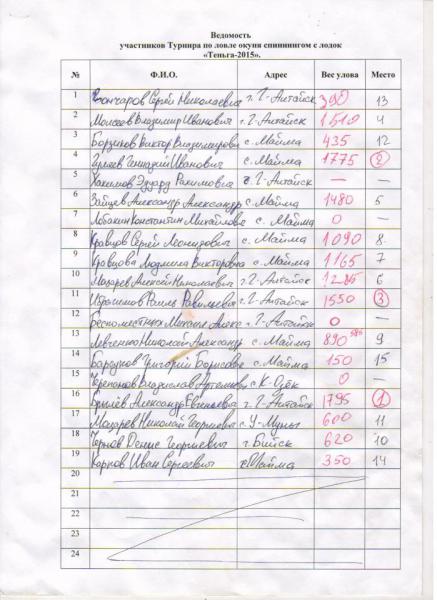 Ведомость
участников Турнира по ловле окуня спиннингом с лодок
«Теньга-2015».
№ Ф.И.О. Адрес Вес улова Место
1 Гончаров Сергей Николаевич г. Г-Алтайск 390 13
2 Моисеев Владимир Иванович г. Г-Алтайск 1510 4
3 Борзунов Виктор Владимирович с. Майма 435 12
4 Гуляев Геннадий Иванович с. Майма 1775 2
5 Хакимов Эдуард Рахимович г. Г-Алтайск — —
6 Зайцев Александр Александр с. Майма 1480 5
7 Лобакин Константин Михайлов с. Майма 0 —
8 Кравцов Сергей Леонидович с. Майма 1090 8
9 Кравцова Людмила Викторовна с. Майма 1165 7
10 Алексей Николаевич г. Г-Алтайск 6
11 Ибрагимов Раиль г. Г-Алтайск 1550 3
12 Беспоместных Михаил Алекс г. Г-Алтайск 0 —
13 Левченко Николай Александр с. Майма 890 9
14 Барсуков Григорий Борисович с. Майма 150 15
15 Владислав с. К-Озёк 0 —
16 Александр Евгеньевич г. Г-Алтайск 1795 1
17 Николай Георгиевич с. У-Муны 600 11
18 Чернов Денис Георгиевич г. Бийск 620 10
19 Карпов Иван Сергеевич с. Майма 350 14
20
21
22
23
24